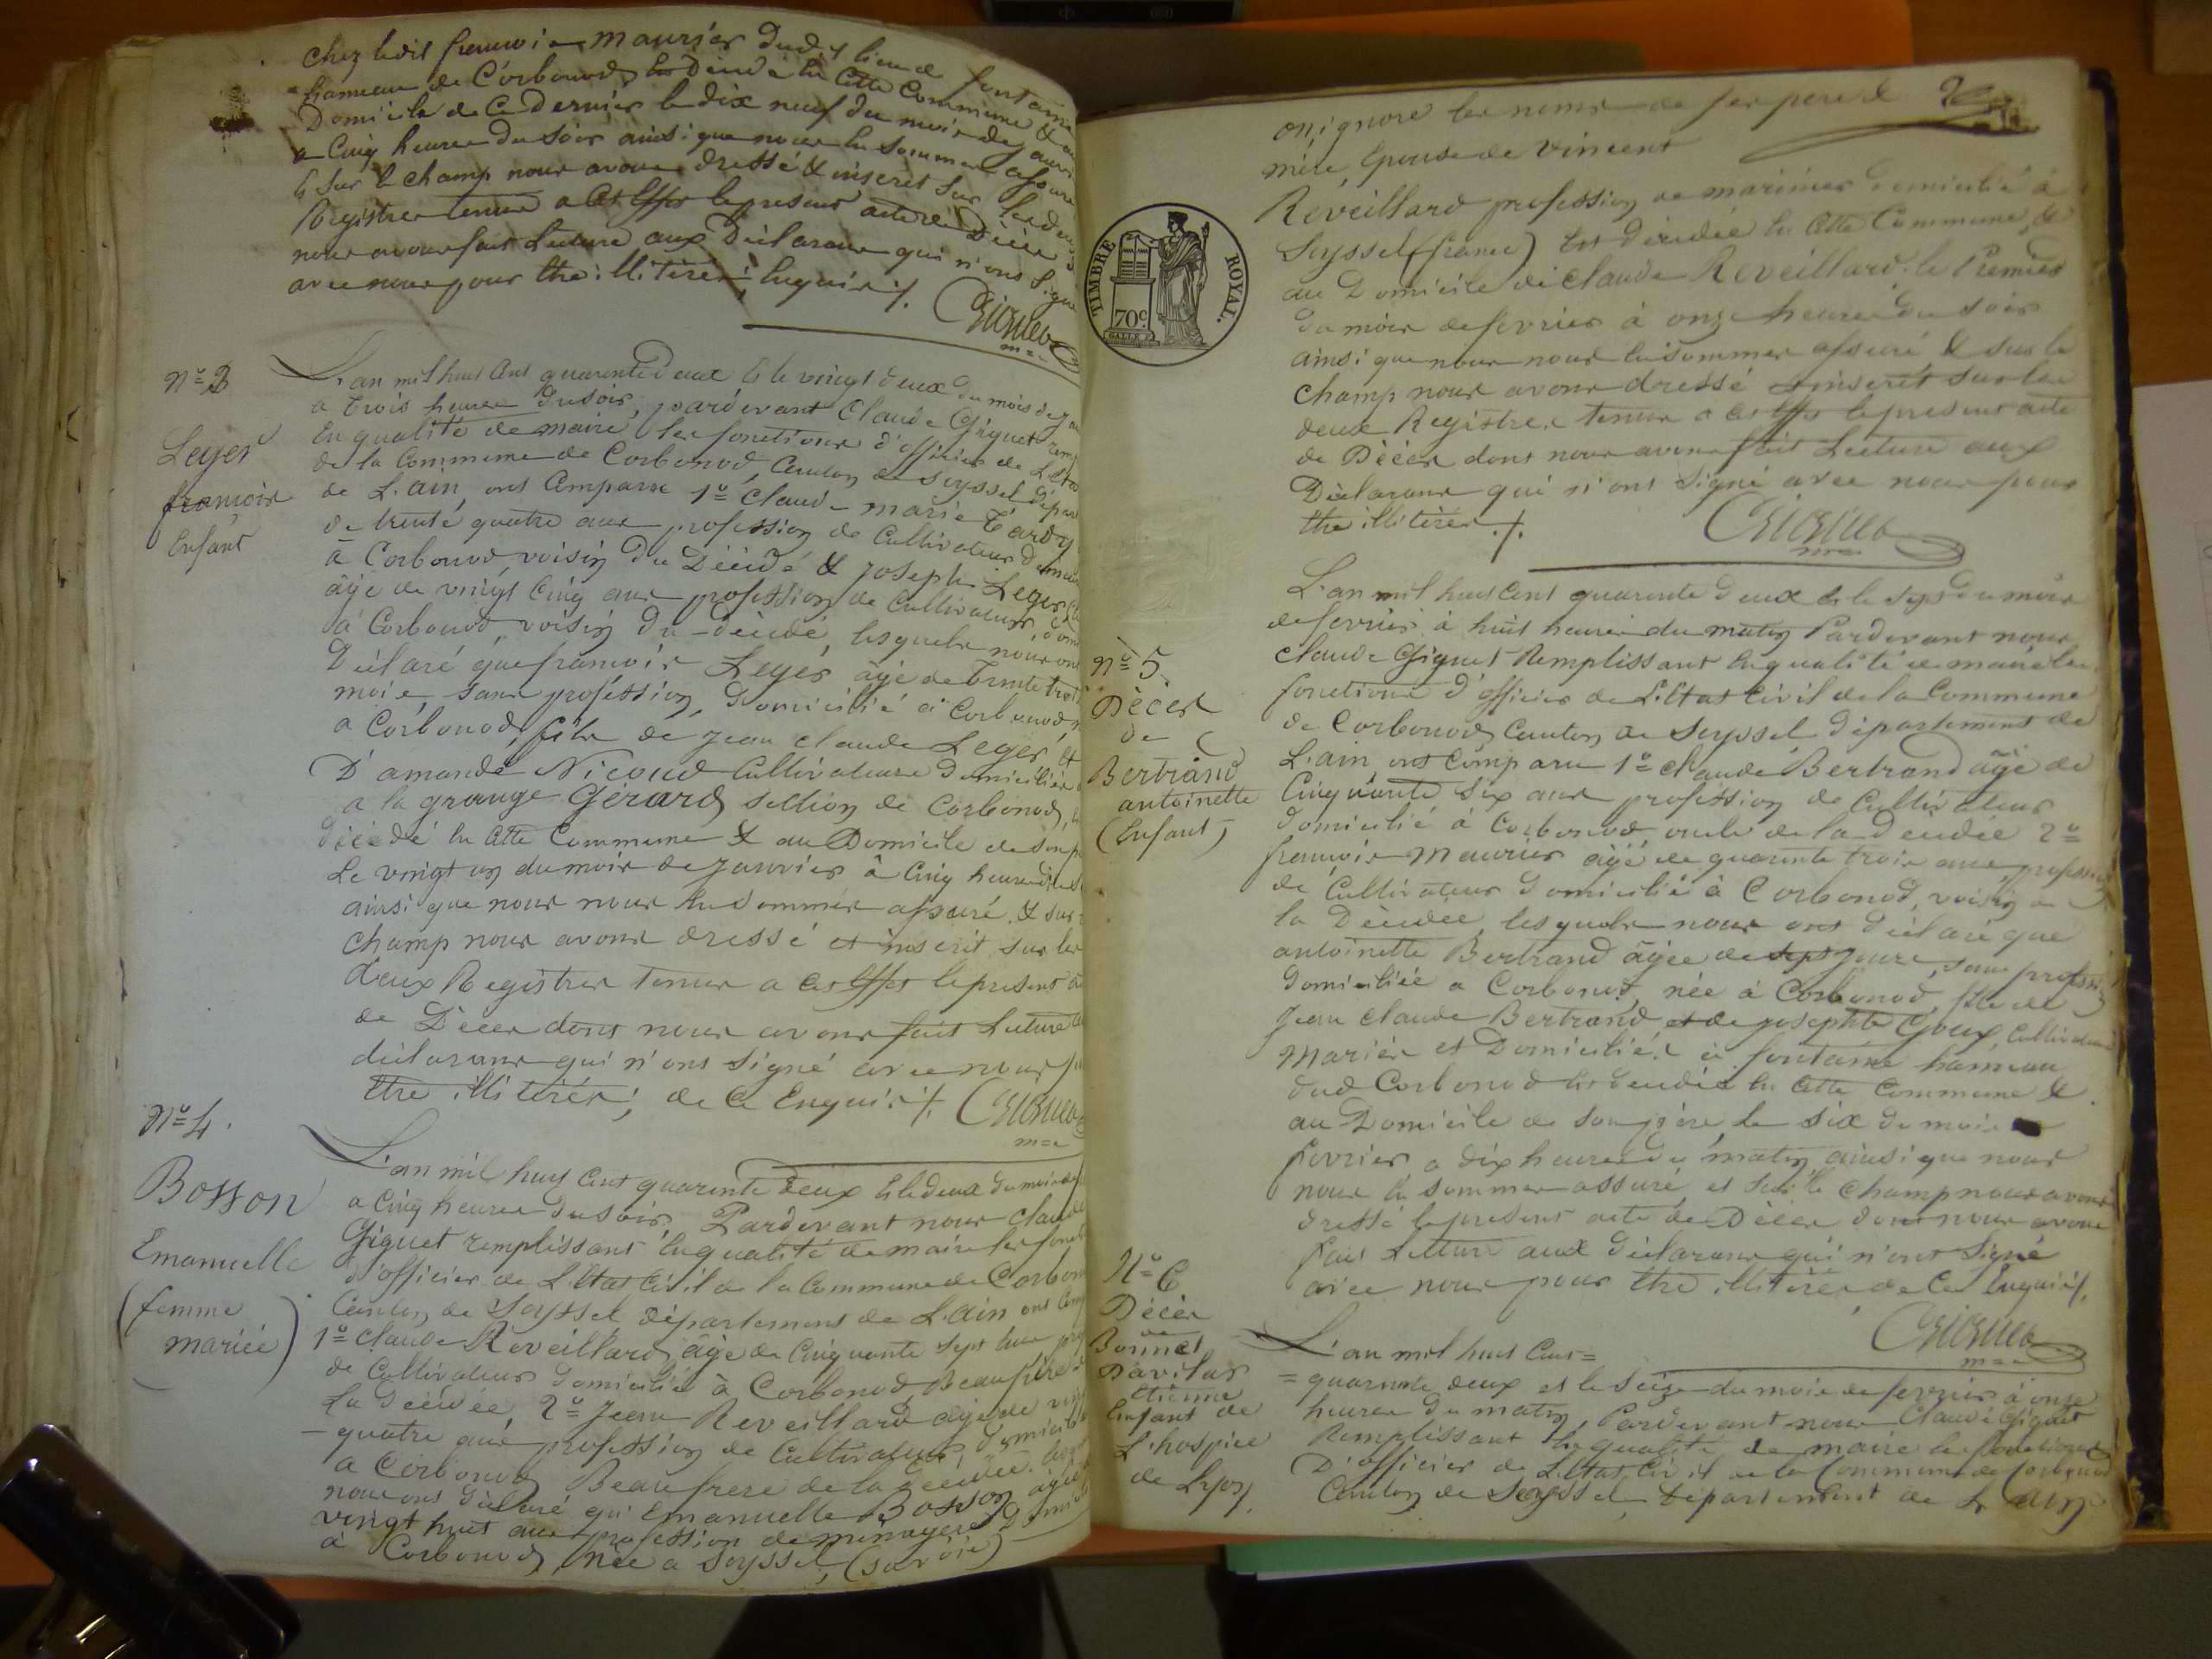 chez ledit francois maurier dud. lieu de fontaine
hameau de Corbonod, Est Décédé En Cette Commune &
Domicile de Ce dernier le dix neuf du mois de
a Cinq heures du Soir ainsi que nous En Sommes assuré
& sur le champ nous avons dressé & inscrit sur les deux
Registres tenus a Cet Effet le present acte de Décès
nous avons fait Lecture aux Déclarans qui n'ont Signé
avec nous pour Etre illiterés; Enquis ./.
N° 3
Leger
francois
Enfant
L'an mil huit Cent quarente deux & le vingt deux du mois de
a trois heures du soir, pardevant Claude Giguet
En qualité de maire les fonctions d'officier de L'Etat
de la Commune de Corbonod, Canton de Seyssel
de L'ain, ont Comparu 1° Claude marie Tardy
de trente quatre ans profession de Cultivateur
à Corbonod, voisin du Décédé & joseph Leger
âgé de vingt Cinq ans profession de Cultivateur,
à Corbonod, voisin du décédé, lesquels nous ont
Déclaré que francois Leger âgé de trente trois
mois, sans profession, Domicilié à Corbonod,
a Corbonod, fils de jean claude Leger, et
D'amande Nicoud Cultivateurs domiciliés
a la grange Gérard, section de Corbonod,
décédé En Cette Commune & au Domicile de son
Le vingt un du mois de janvier à Cinq heures du
ainsi que nous nous En Sommes assuré & sur
champ nous avons dressé et inscrit sur les
deux Registres tenus a Cet Effet le present
de Décès dont nous avons fait Lecture
déclarans qui n'ont Signé avec nous
Etre illiterés; de Ce Enquis ./.
N° 4.
Bosson
Emanuelle
(femme
mariée)
L'an mil huit Cent quarente deux & le deux du mois de
a Cinq heures du soir, Pardevant nous Claude
Giguet remplissant En qualité de maire les
d'officier de L'Etat Civil de la Commune de
Canton de Seyssel Département de L'ain ont
1° Claude Reveillard, âgé de Cinquante sept ans
de Cultivateur domicilié à Corbonod, Beaupère de
La Décédée, 2° Jean Reveillard âgé de vingt
quatre ans profession de Cultivateur, domicilié
a Corbonod Beaufrere de la Décédée. lesquels
nous ont Déclaré qu'Emanuelle Bosson âgée
vingt huit ans profession de menagere,
à Corbonod, née a Seyssel, (savoie)
on ignore les noms de ses pere & 2
mère, Epouse de Vincent
Reveillard profession de marinier domicilié à
Seyssel (france) Est décédée En Cette Commune, &
au Domicile de claude Reveillard. le Premier
du mois de fevrier à onze heures du soir
ainsi que nous nous En Sommes assuré & sur le
champ nous avons dressé et inscrit sur les
deux Registres tenus a Cet Effet le present acte
de Décès dont nous avons fait Lecture aux
Déclarans qui n'ont Signé avec nous pour
Etre illiterés ./.
TIMBRE ROYAL.
70c
N° 5
Décès
de
Bertrand
antoinette
(Enfant)
L'an mil huit Cent quarente deux & le sept du mois
de fevrier à huit heures du matin Pardevant nous
Claude Giguet Remplissant En qualité de maire les
fonctions d'officier de L'Etat Civil de la Commune
de Corbonod, Canton de Seyssel, Département de
L'ain, ont Comparu 1° claude Bertrand âgé de
Cinquante Six ans profession de Cultivateur
domicilié à Corbonod oncle de la décédée 2°
francois maurier âgé de quarente trois ans, profession
de Cultivateur domicilié à Corbonod, voisin de
la Décédée, lesquels nous ont déclaré que
antoinette Bertrand âgée de sept jours, sans profession
domiciliée a Corbonod, née à Corbonod, fille de
Jean Claude Bertrand, et de josephte Goux, Cultivateurs
Mariés et Domiciliés à fontaine hameau
dud Corbonod Est décédée En Cette Commune &
au Domicile de son père, le Six du mois
fevrier a dix heures du matin, ainsi que nous
nous En Sommes assuré, et sur le champ nous avons
dressé le present acte de Décès dont nous avons
fait Lecture aux déclarans qui n'ont Signé
avec nous pour Etre illiterés de Ce Enquis ./.
N° 6
Décès
de
Bonnet
Davilas
Etienne
Enfant de
L'hospice
de Lyon,
L'an mil huit Cent =
= quarente deux et le Seize du mois de fevrier à onze
heures du matin, Pardevant nous Claude Giguet
Remplissant En qualité de maire les fonctions
D'officier de L'Etat Civil de la Commune de Corbonod
Canton de Seyssel, Département de L'ain